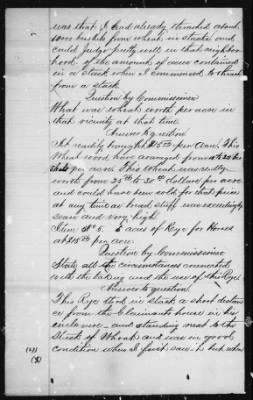 was that I had already threshed about
bushels from wheat in stacks and
could judge pretty well in that neighbor
hood of the amount of acres contained
in a stack when I commenced to thresh
from a stack
Question by Commissioner
What was wheat worth per acre in
that vicinity at that time
Answer to question
It readily brought $25.00 per acre. This
Wheat would have averaged from 15 to 20 bu
per acre This Wheat was readily
worth from 25 to 30 dollars per acre
and could have been sold for that price
at any time as bread stuff was exceedingly
scarce and very high
Item No 6. 5 acres of Rye for Horses
at $15.00 per acre
Question by Commissioner
State all the circumstances connected
with the taking and the use of this Rye
Answer to question
This Rye stood in stack a short distan
ce from the Claimants house in his
enclosure - and standing next to the
Stack of Wheat and was in good
condition when I first saw it but when